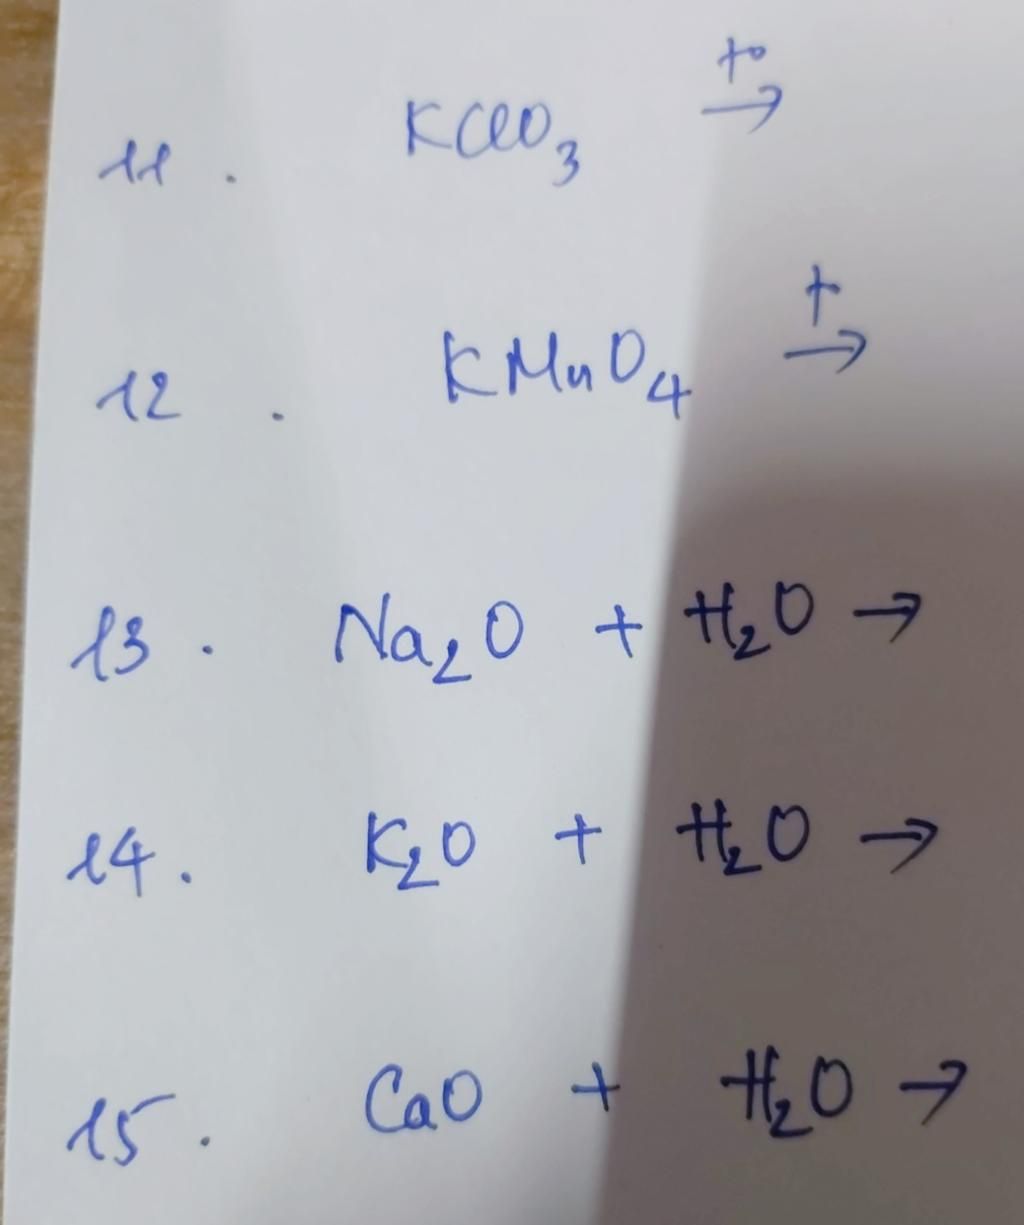 11. KClO₃ →^t°
12. KMnO₄ →^t
13. Na₂O + H₂O →
14. K₂O + H₂O →
15. CaO + H₂O →